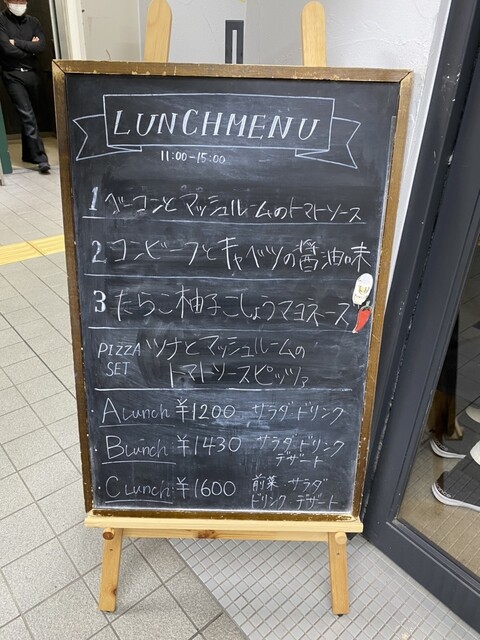 LUNCHMENU
11:00-15:00
1 ベーコンとマッシュルームのトマトソース
2 コンビーフとキャベツの醤油味
3 たらこ柚子こしょうマヨネーズ
PIZZA SET ツナとマッシュルームの
トマトソースピッツァ
・A Lunch ¥1200 サラダドリンク
・B Lunch ¥1430 サラダドリンク
デザート
・C Lunch ¥1600 前菜 サラダ
ドリンク デザート